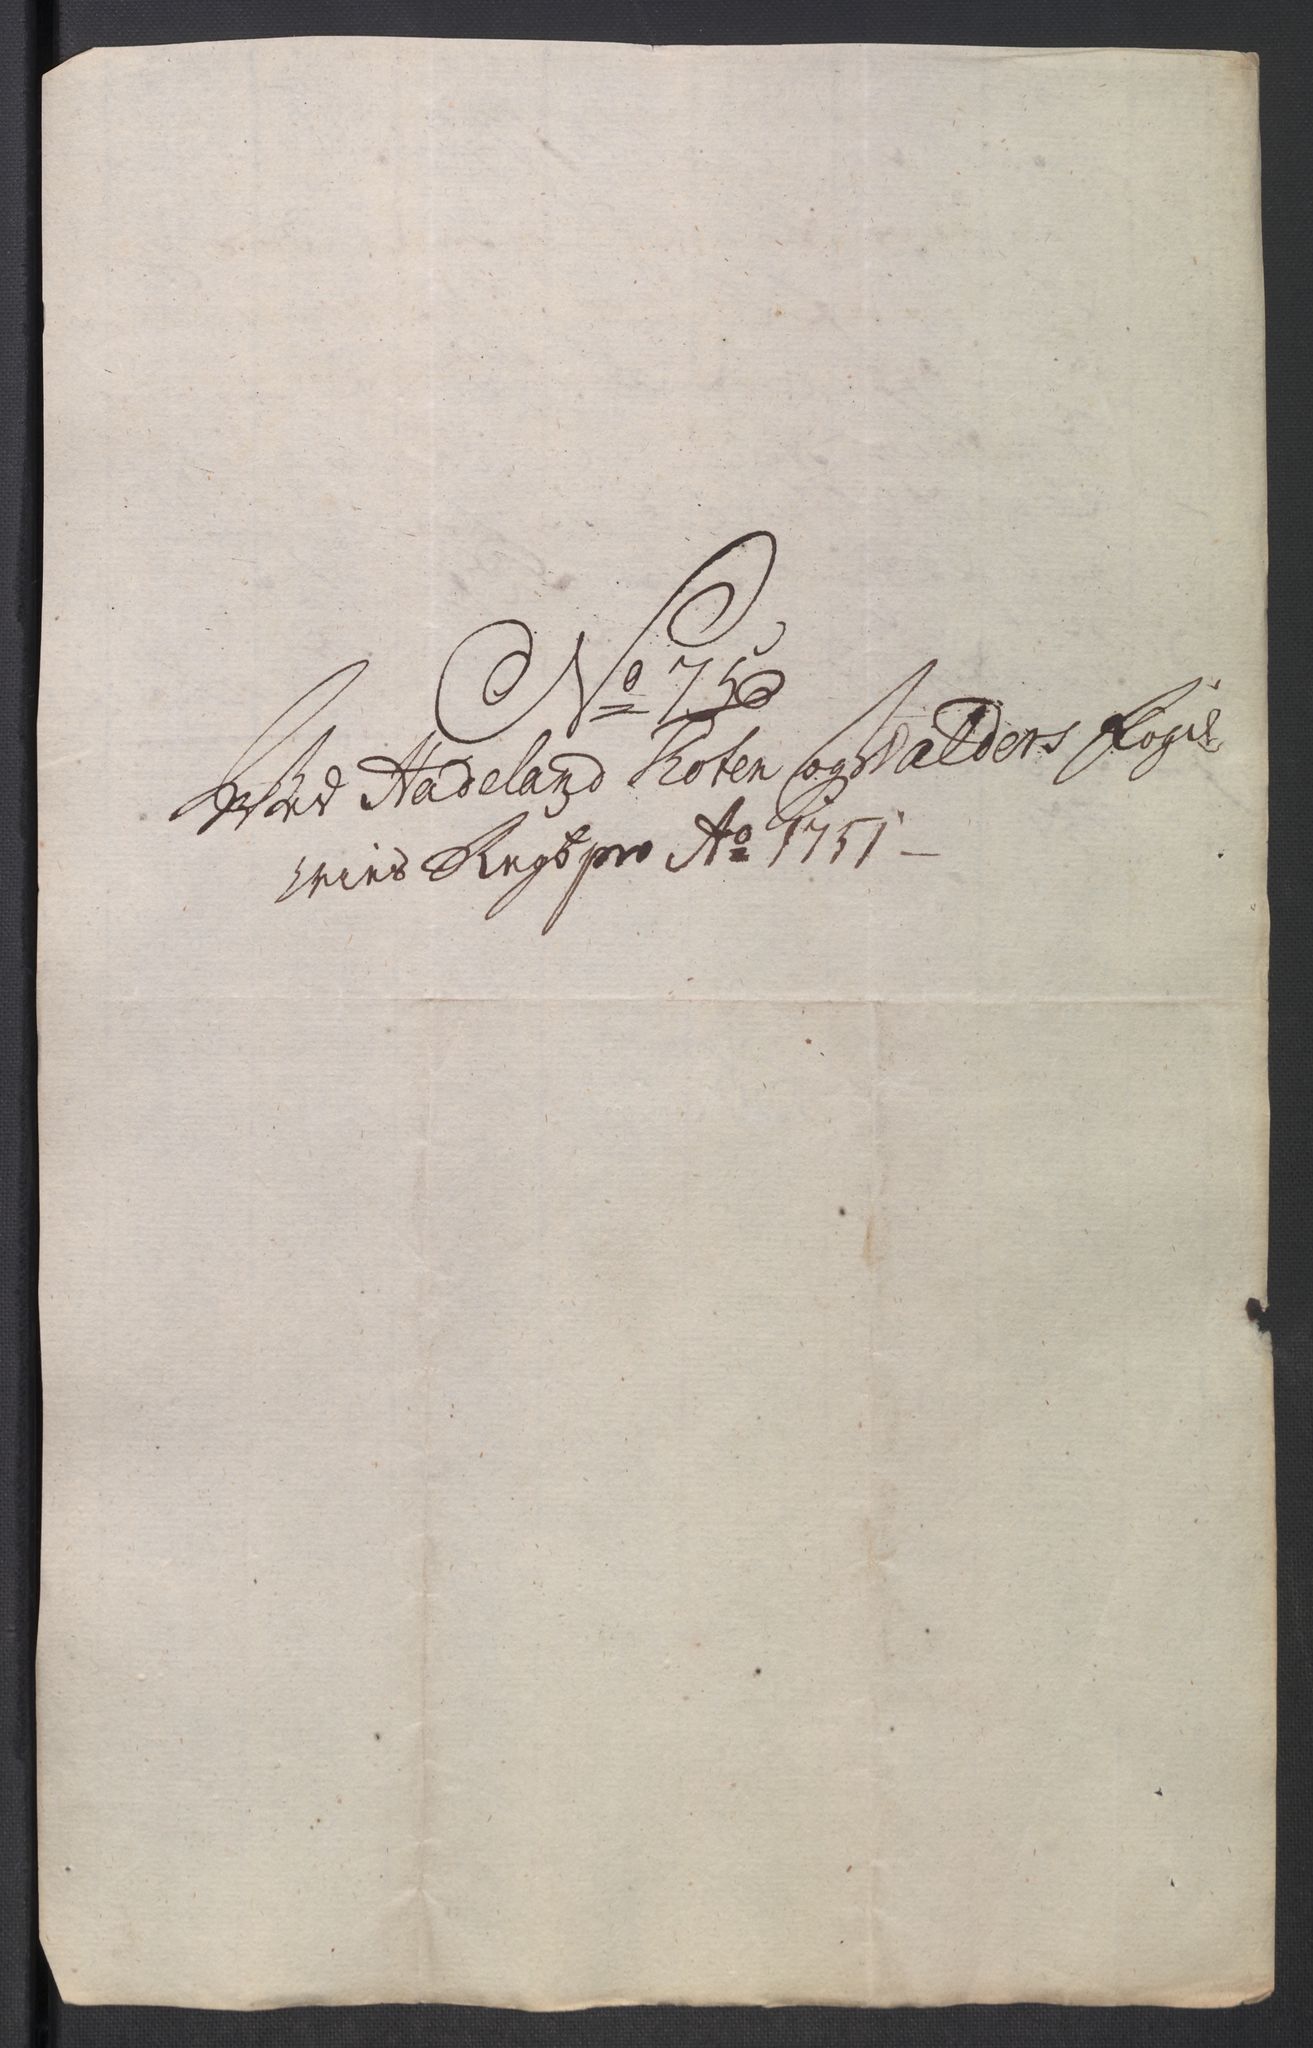 No 75
Ved Hadeland Toten og Valders Fogde
riets Regsk pro Ao 1751 —